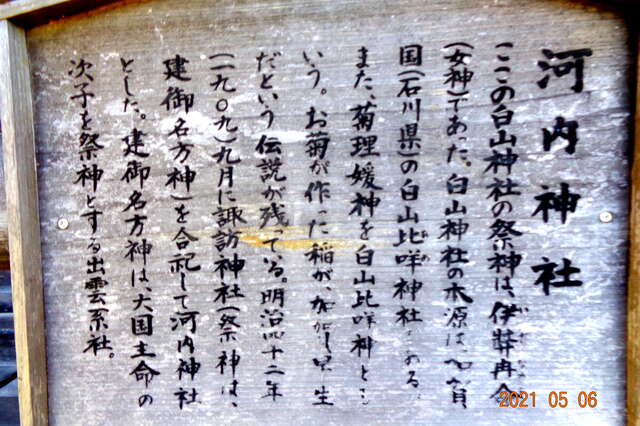 河内神社
ここの白山神社の祭神は、伊弉冉命
(女神)であた。白山神社の本源は、加賀
国(石川県)の白山比咩神社である。
また、菊理媛神を白山比咩神とも
いう。お菊が作った稲が、 生
だという伝説が残っている。明治四十二年
(一九〇九)九月に諏訪神社(祭神は、
建御名方神)を合祀して河内神社
とした。建御名方神は、大国主命の
次子を祭神とする出雲系社。
2021 05 06